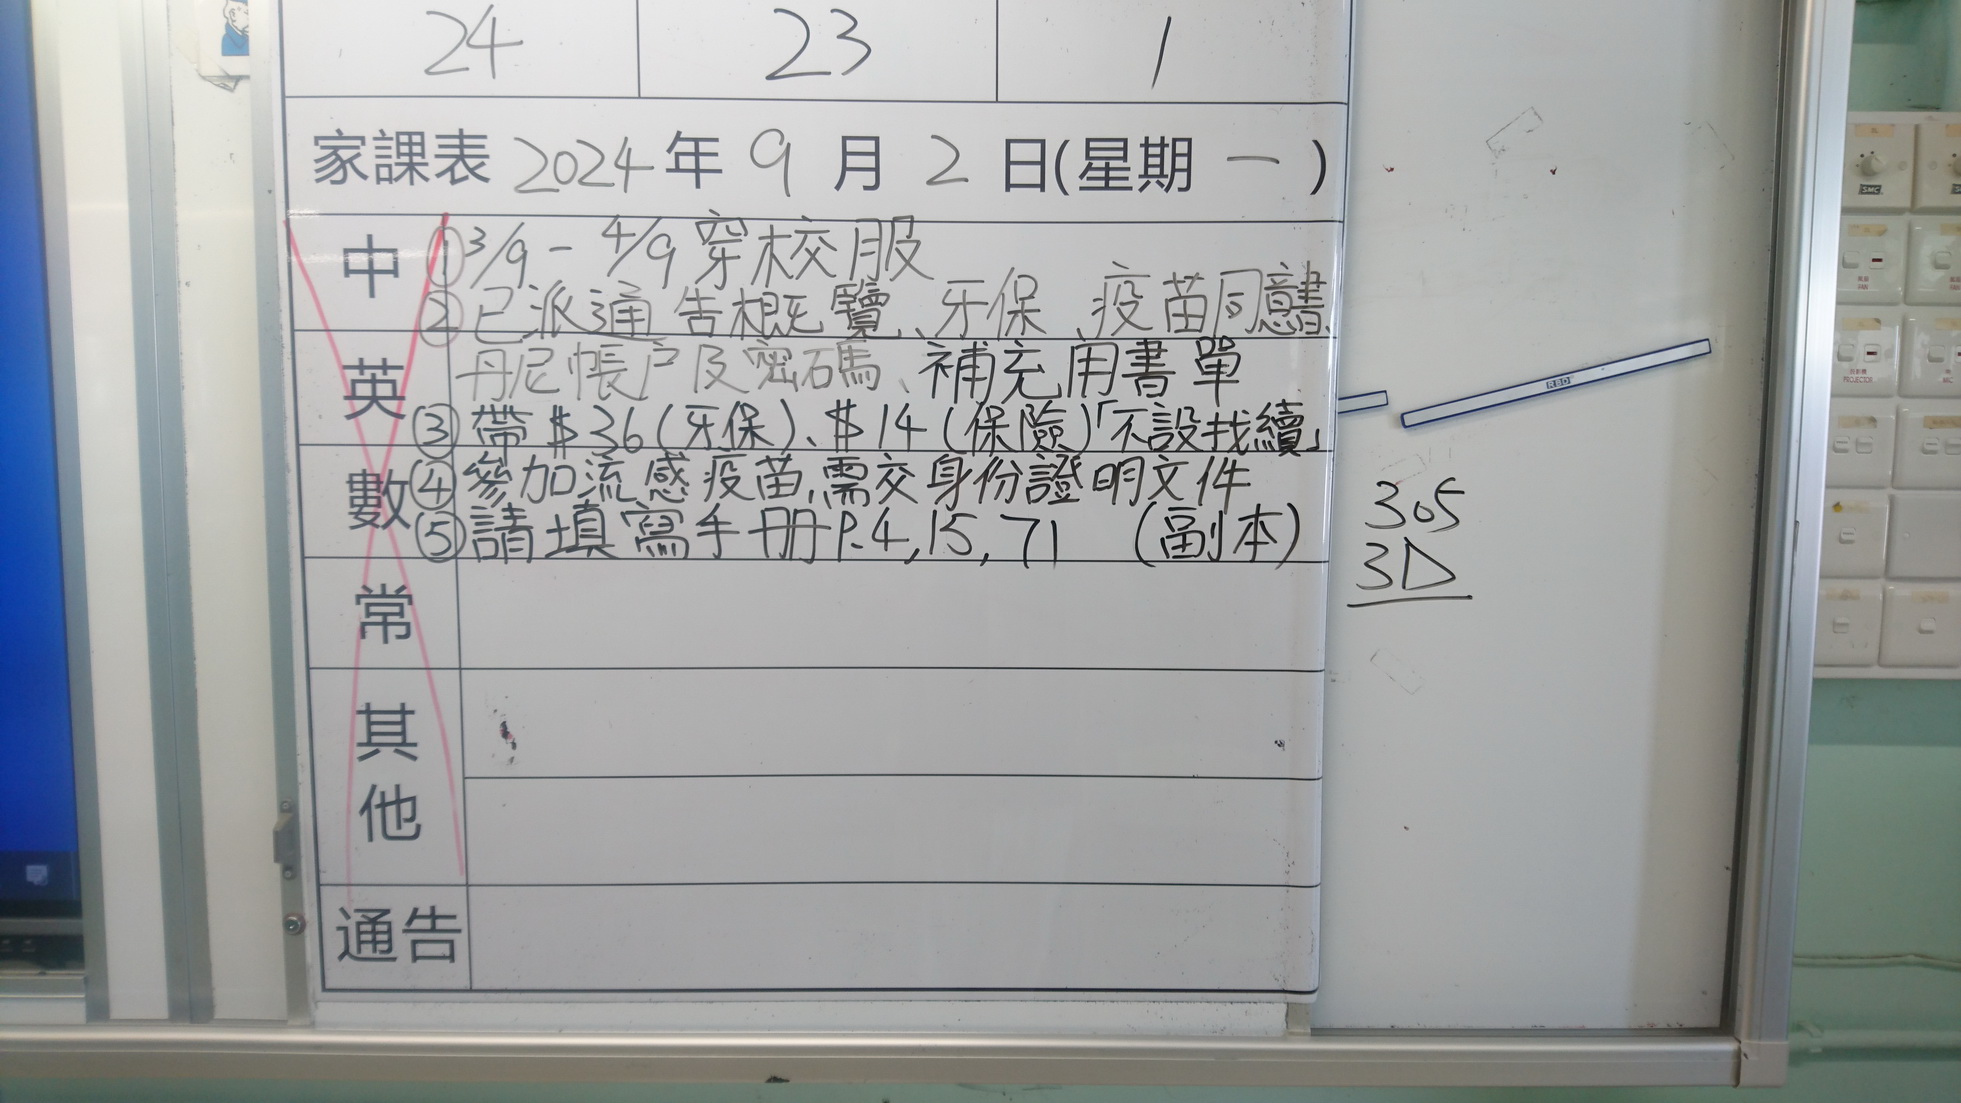 24 23 1
家課表 2024年 9 月 2 日(星期 一 )
中 ①3/9 - 4/9 穿校服
②已派通告概覽、牙保、疫苗同意書、
英 丹尼帳戶及密碼、補充用書單
③帶$36(牙保)、$14(保險)「不設找續」
數 ④參加流感疫苗需交身份證明文件
⑤請填寫手冊P.4,15,71 (副本)
常
其他
通告
305
3D
RBD
SMC
FAN
PROJECTOR